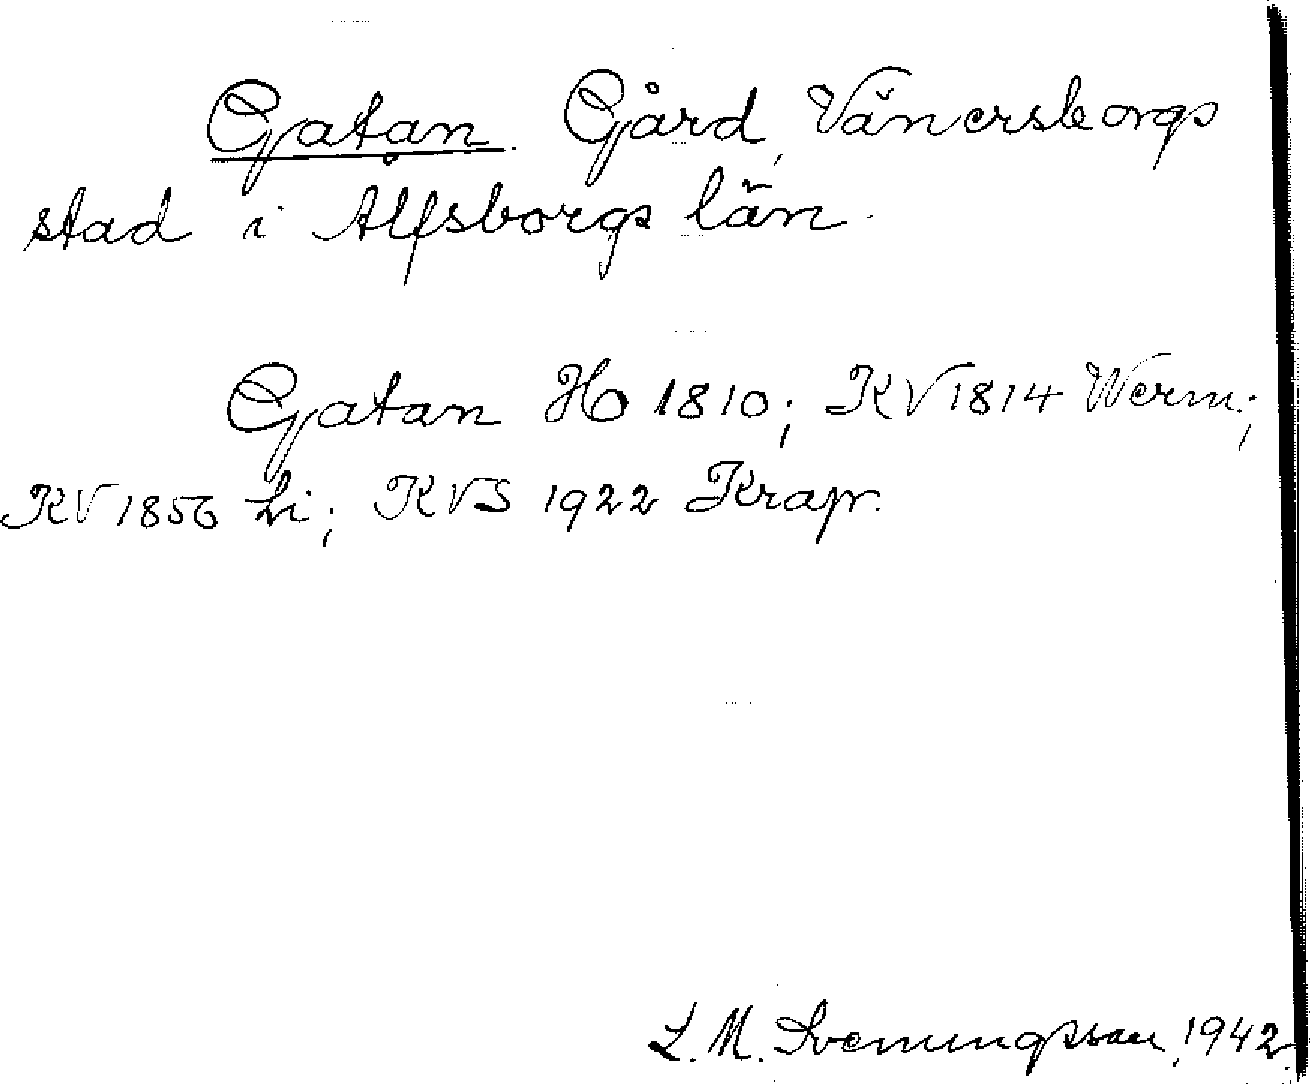 Gatan. Gård, Vänersborgs
stad i Älfsborgs län.
Gatan Ho 1810; KV 1814 Werm.;
KV 1856 Li; KVS 1922 Krapr.
L. M. Svenungsson, 1942.